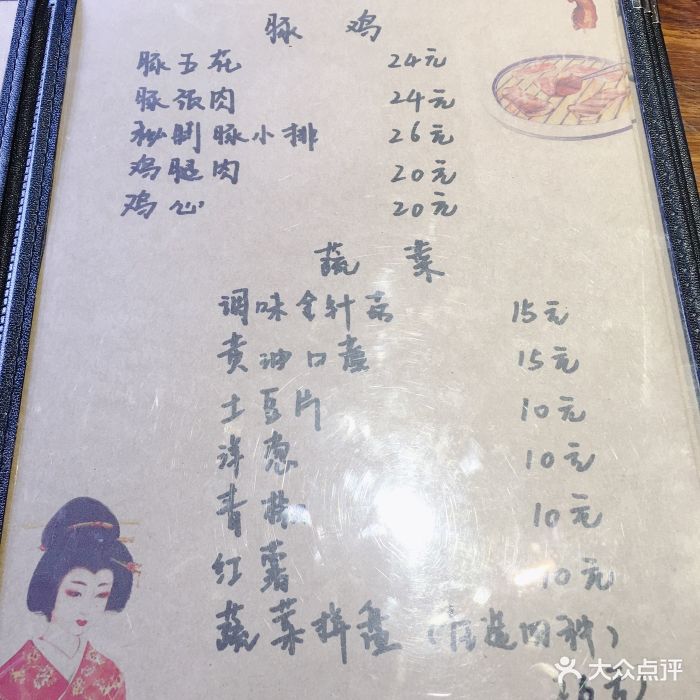 豚 鸡
豚五花 24元
豚颈肉 24元
秘制豚小排 26元
鸡腿肉 20元
鸡心 20元
蔬 菜
调味金针菇 15元
黄油口蘑 15元
土豆片 10元
洋葱 10元
青椒 10元
红薯 10元
蔬菜拼盘（任选四种）
大众点评